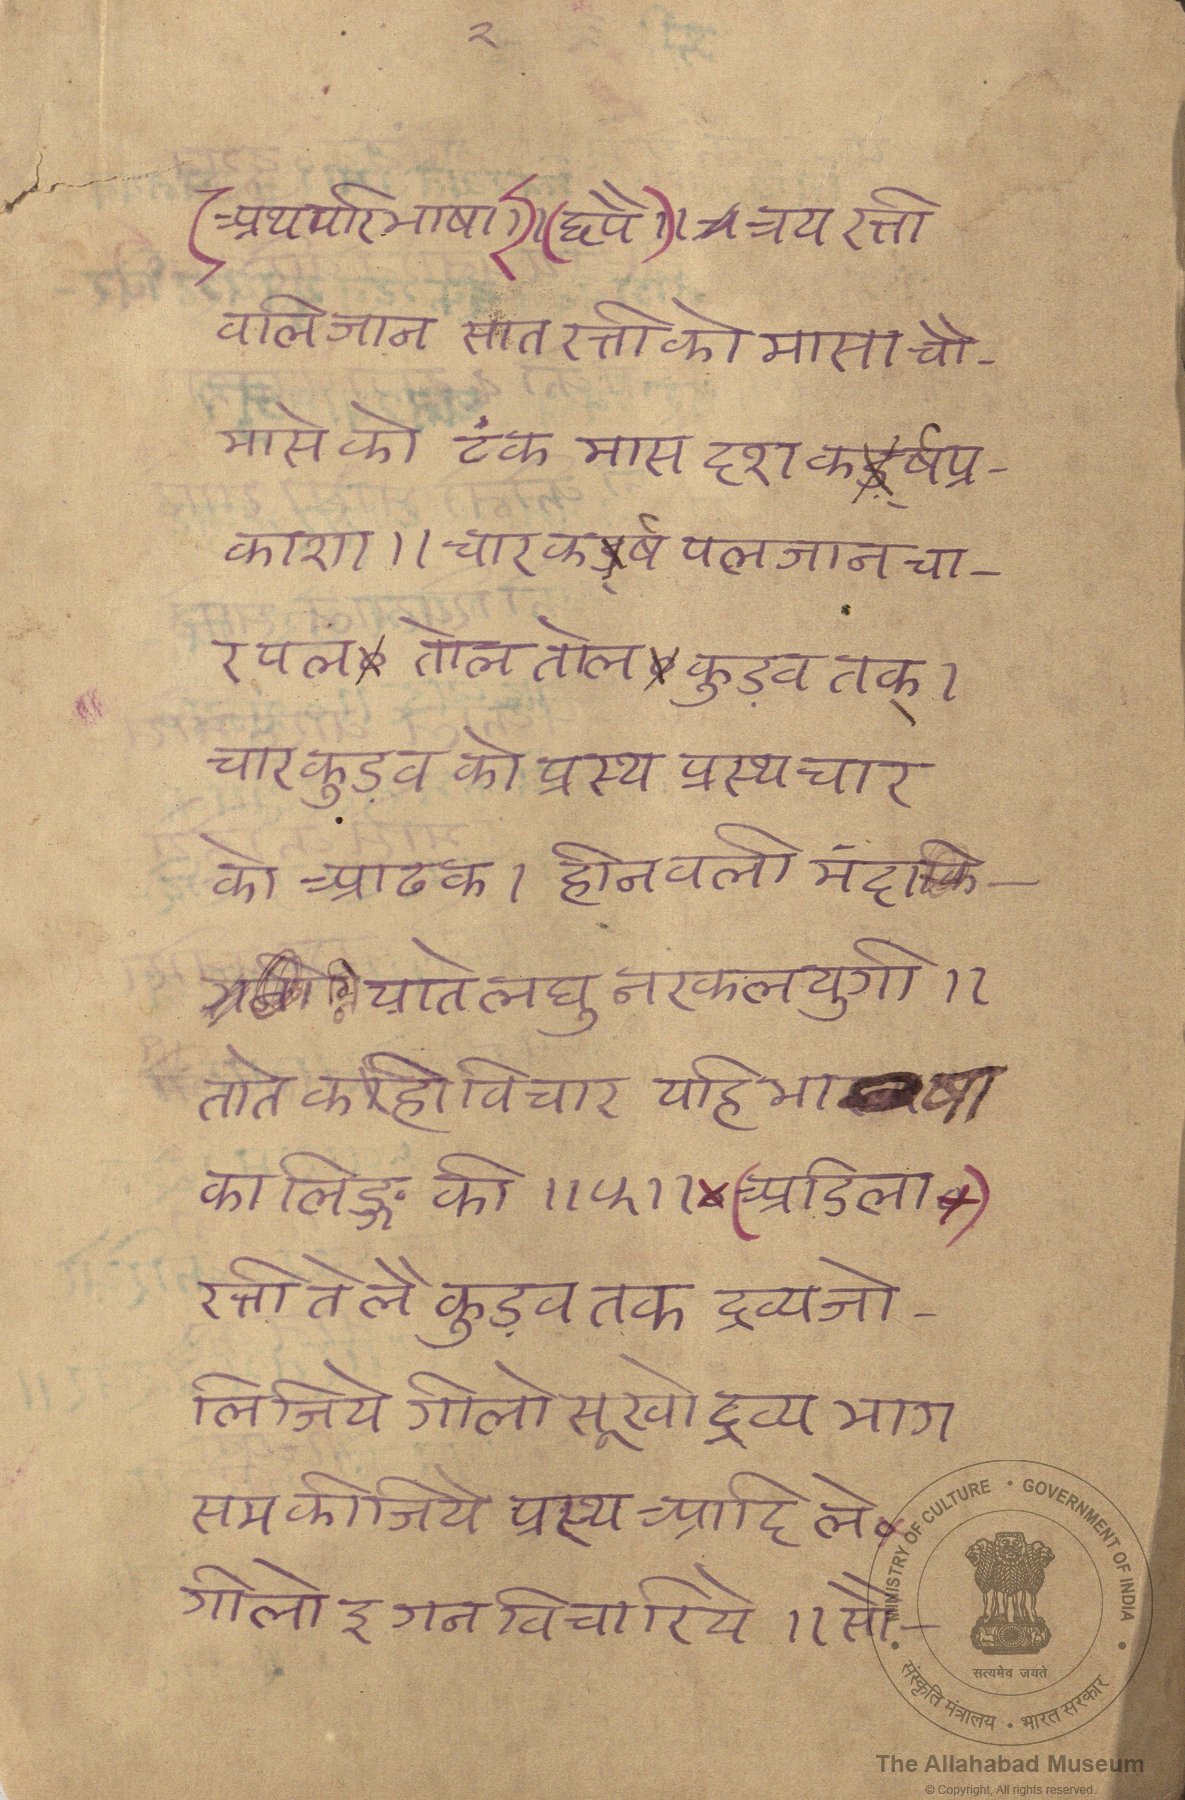 २
(अथपरिभाषा॥)॥(छपै॥)॥ त्रय रत्ती
वलिजान सात रत्तीको मासा चौ-
मासे को टंक मास दश कर्षप्र-
काशा ॥ चार कर्ष पल जान चा-
र पल तोल तोल कुड़व तक्।
चार कुड़व को प्रस्थ प्रस्थ चार
को आढक। हीनवली मंदा
याते लघु नर कलयुगी ॥
ताते कही विचार यहि भाषा
कालिङ्ग की ॥ ५ ॥ (अडिला)
रत्ती ते लै कुड़व तक द्रव्य जो-
लिजिये गीलो सूखो द्रव्य भाग
सम कीजिये प्रस्थ आदि ले
गीलो इ गन विचारिये ॥ सौ-
MINISTRY OF CULTURE • GOVERNMENT OF INDIA
सत्यमेव जयते
संस्कृति मंत्रालय • भारत सरकार
The Allahabad Museum
© Copyright, All rights reserved.